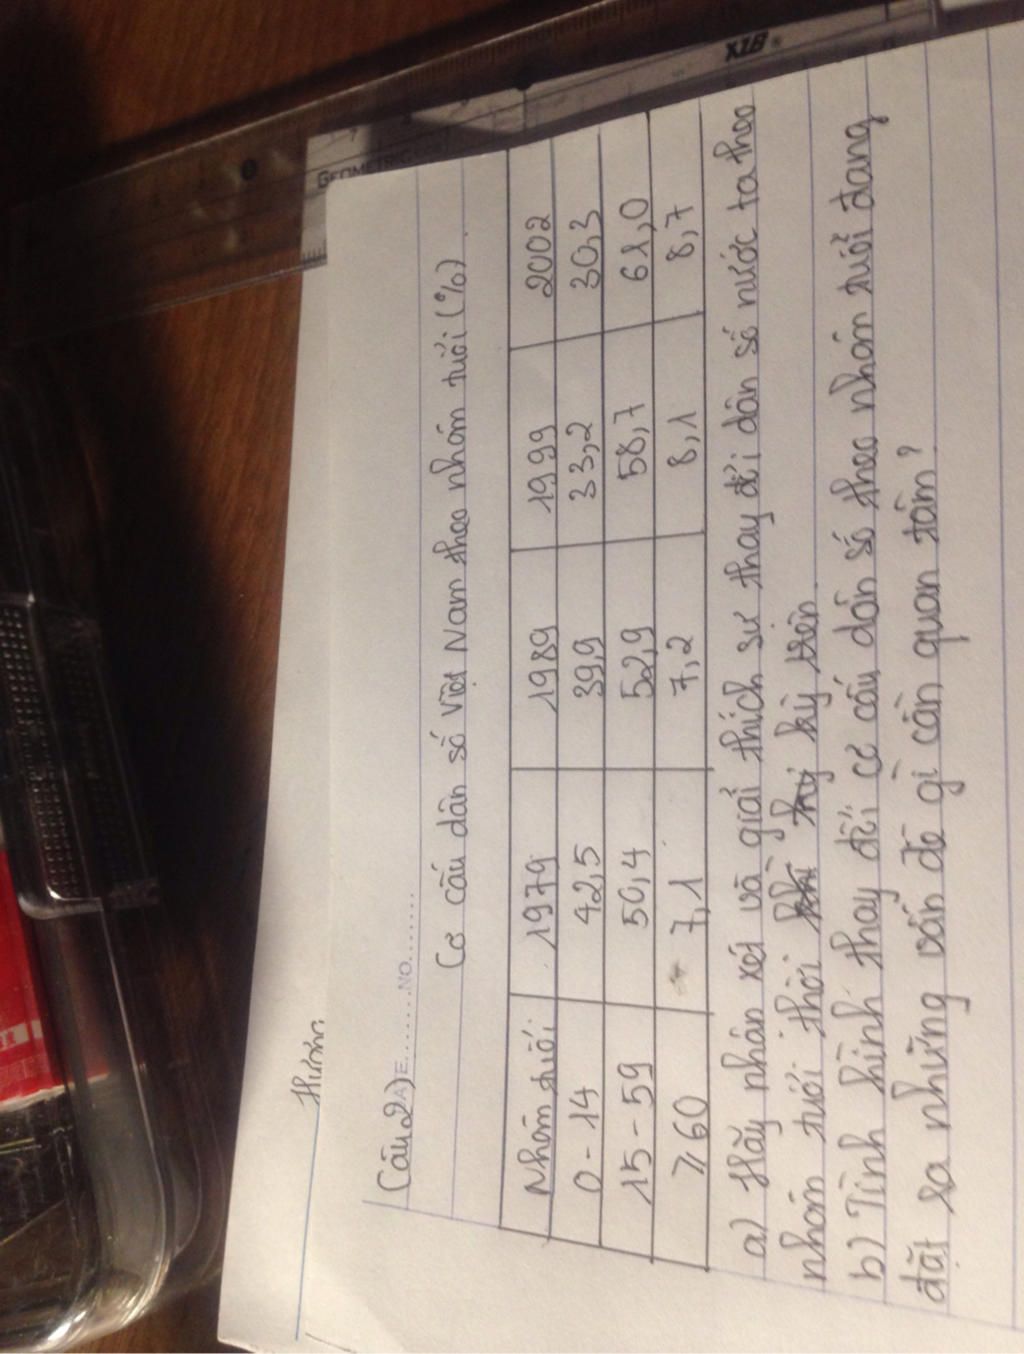 XIB
GEOMETRIC
Hương
Câu 2) DATE.......NO.......
Cơ cấu dân số Việt Nam theo nhóm tuổi (%)
Nhóm tuổi 1979 1989 1999 2002
0 - 14 42,5 39,9 33,2 30,3
15 - 59 50,4 52,9 58,7 61,0
≥ 60 7,1 7,2 8,1 8,7
a) Hãy nhận xét và giải thích sự thay đổi dân số nước ta theo
nhóm tuổi thời kỳ trên.
b) Tình hình thay đổi cơ cấu dân số theo nhóm tuổi đang
đặt ra những vấn đề gì cần quan tâm?